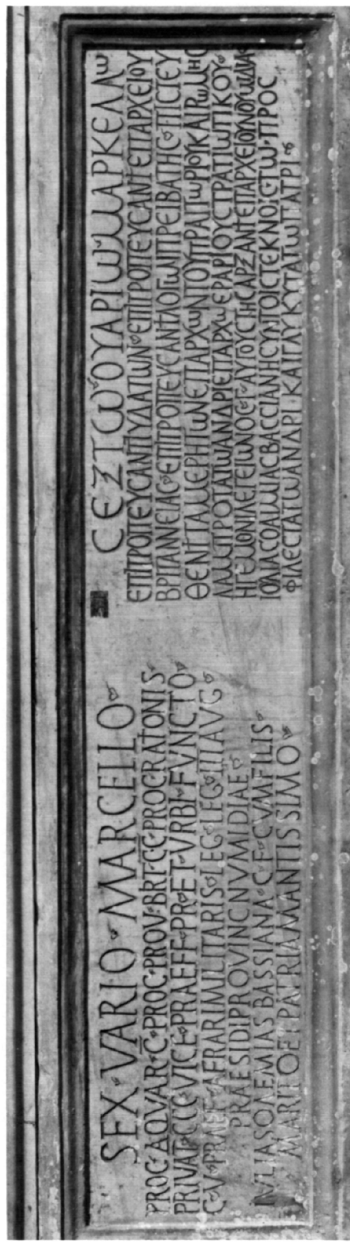 SEX·VARIO·MARCELLO
PROC·AQVAR·C·PROC·PROV·BRIT·CC·PROC·RATIONIS
PRIVAT·CCC·VICE·PRAEFF·PR·ET·VRBI·FVNCTO
C·V·PRAEF·AERARI MILITARIS·LEG·LEG·III AVG
PRAESIDI PROVINC NVMIDIAE
IVLIA SOAEMIAS BASSIANA·C·F·CVM FILIS
MARITO ET PATRI AMANTISSIMO
ϹΕΞΤΩ ΟΥΑΡΙΩ ΜΑΡΚΕΛΛΩ
ΕΠΙΤΡΟΠΕΥϹΑΝΤΙ ΥΔΑΤΩΝ ΕΠΙΤΡΟΠΕΥϹΑΝΤΙ ΕΠΑΡΧΕΙΟΥ
ΒΡΙΤΑΝΝΕΙΑϹ ΕΠΙΤΡΟΠΕΥϹΑΝΤΙ ΛΟΓΩΝ ΠΡΕΙΒΑΤΗϹ ΠΙϹΤΕΥ
ΘΕΝΤΙ ΤΑ ΜΕΡΗ ΤΩΝ ΕΠΑΡΧΩΝ ΤΟΥ ΠΡΑΙΤΩΡΙΟΥ ΚΑΙ ΡΩΜΗϹ
ΛΑΜΠΡΟΤΑΤΩ ΑΝΔΡΙ ΕΠΑΡΧΩ ΕΡΑΡΙΟΥ ϹΤΡΑΤΙΩΤΙΚΟΥ
ΗΓΕΜΟΝΙ ΛΕΓΕΙΩΝΟϹ Γ ΑΥΓΟΥϹΤΗϹ ΑΡΞΑΝΤΙ ΕΠΑΡΧΕΙΟΥ ΝΟΥΜΙΔΙΑϹ
ΙΟΥΛΙΑ ϹΟΑΙΜΙΑϹ ΒΑϹϹΙΑΝΗ ϹΥΝ ΤΟΙϹ ΤΕΚΝΟΙϹ ΤΩ ΠΡΟϹ
ΦΙΛΕϹΤΑΤΩ ΑΝΔΡΙ ΚΑΙ ΓΛΥΚΥΤΑΤΩ ΠΑΤΡΙ